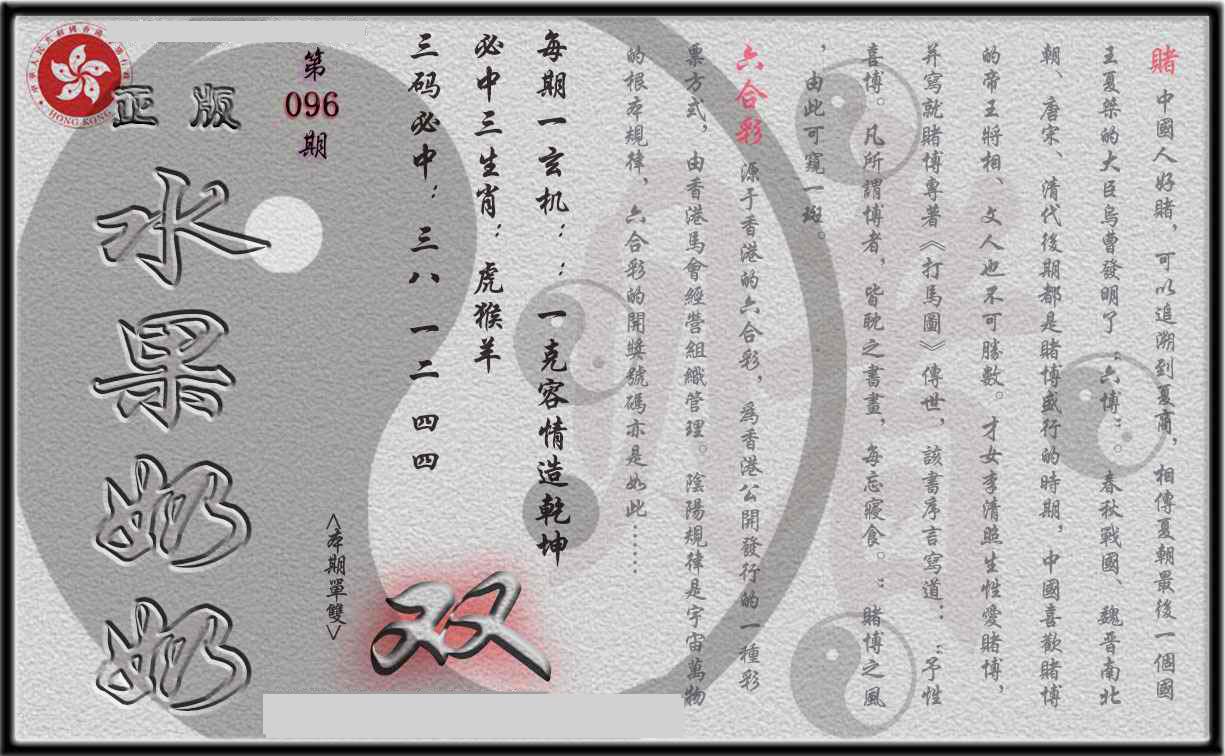 賭 中國人好賭，可以追溯到夏商，相傳夏朝最後一個國
王夏桀的大臣烏曹發明了“六博”。春秋戰國、魏晉南北
朝、唐宋、清代後期都是賭博盛行的時期，中國喜歡賭博
的帝王將相、文人也不可勝數。才女李清照生性愛賭博，
并寫就賭博專著《打馬圖》傳世，該書序言寫道：“予性
喜博。凡所謂博者，皆耽之書畫，每忘寢食。”賭博之風
，由此可窺一斑。
六合彩 源于香港的六合彩，為香港公開發行的一種彩
票方式，由香港馬會經營組織管理。陰陽規律是宇宙萬物
的根本規律、六合彩的開獎號碼亦是如此……
每期一玄机：：一克容情造乾坤
必中三生肖：虎猴羊
三码必中：三八 一二 四四
双
<本期單雙>
第
096
期
正版
水果奶奶
HONG KONG